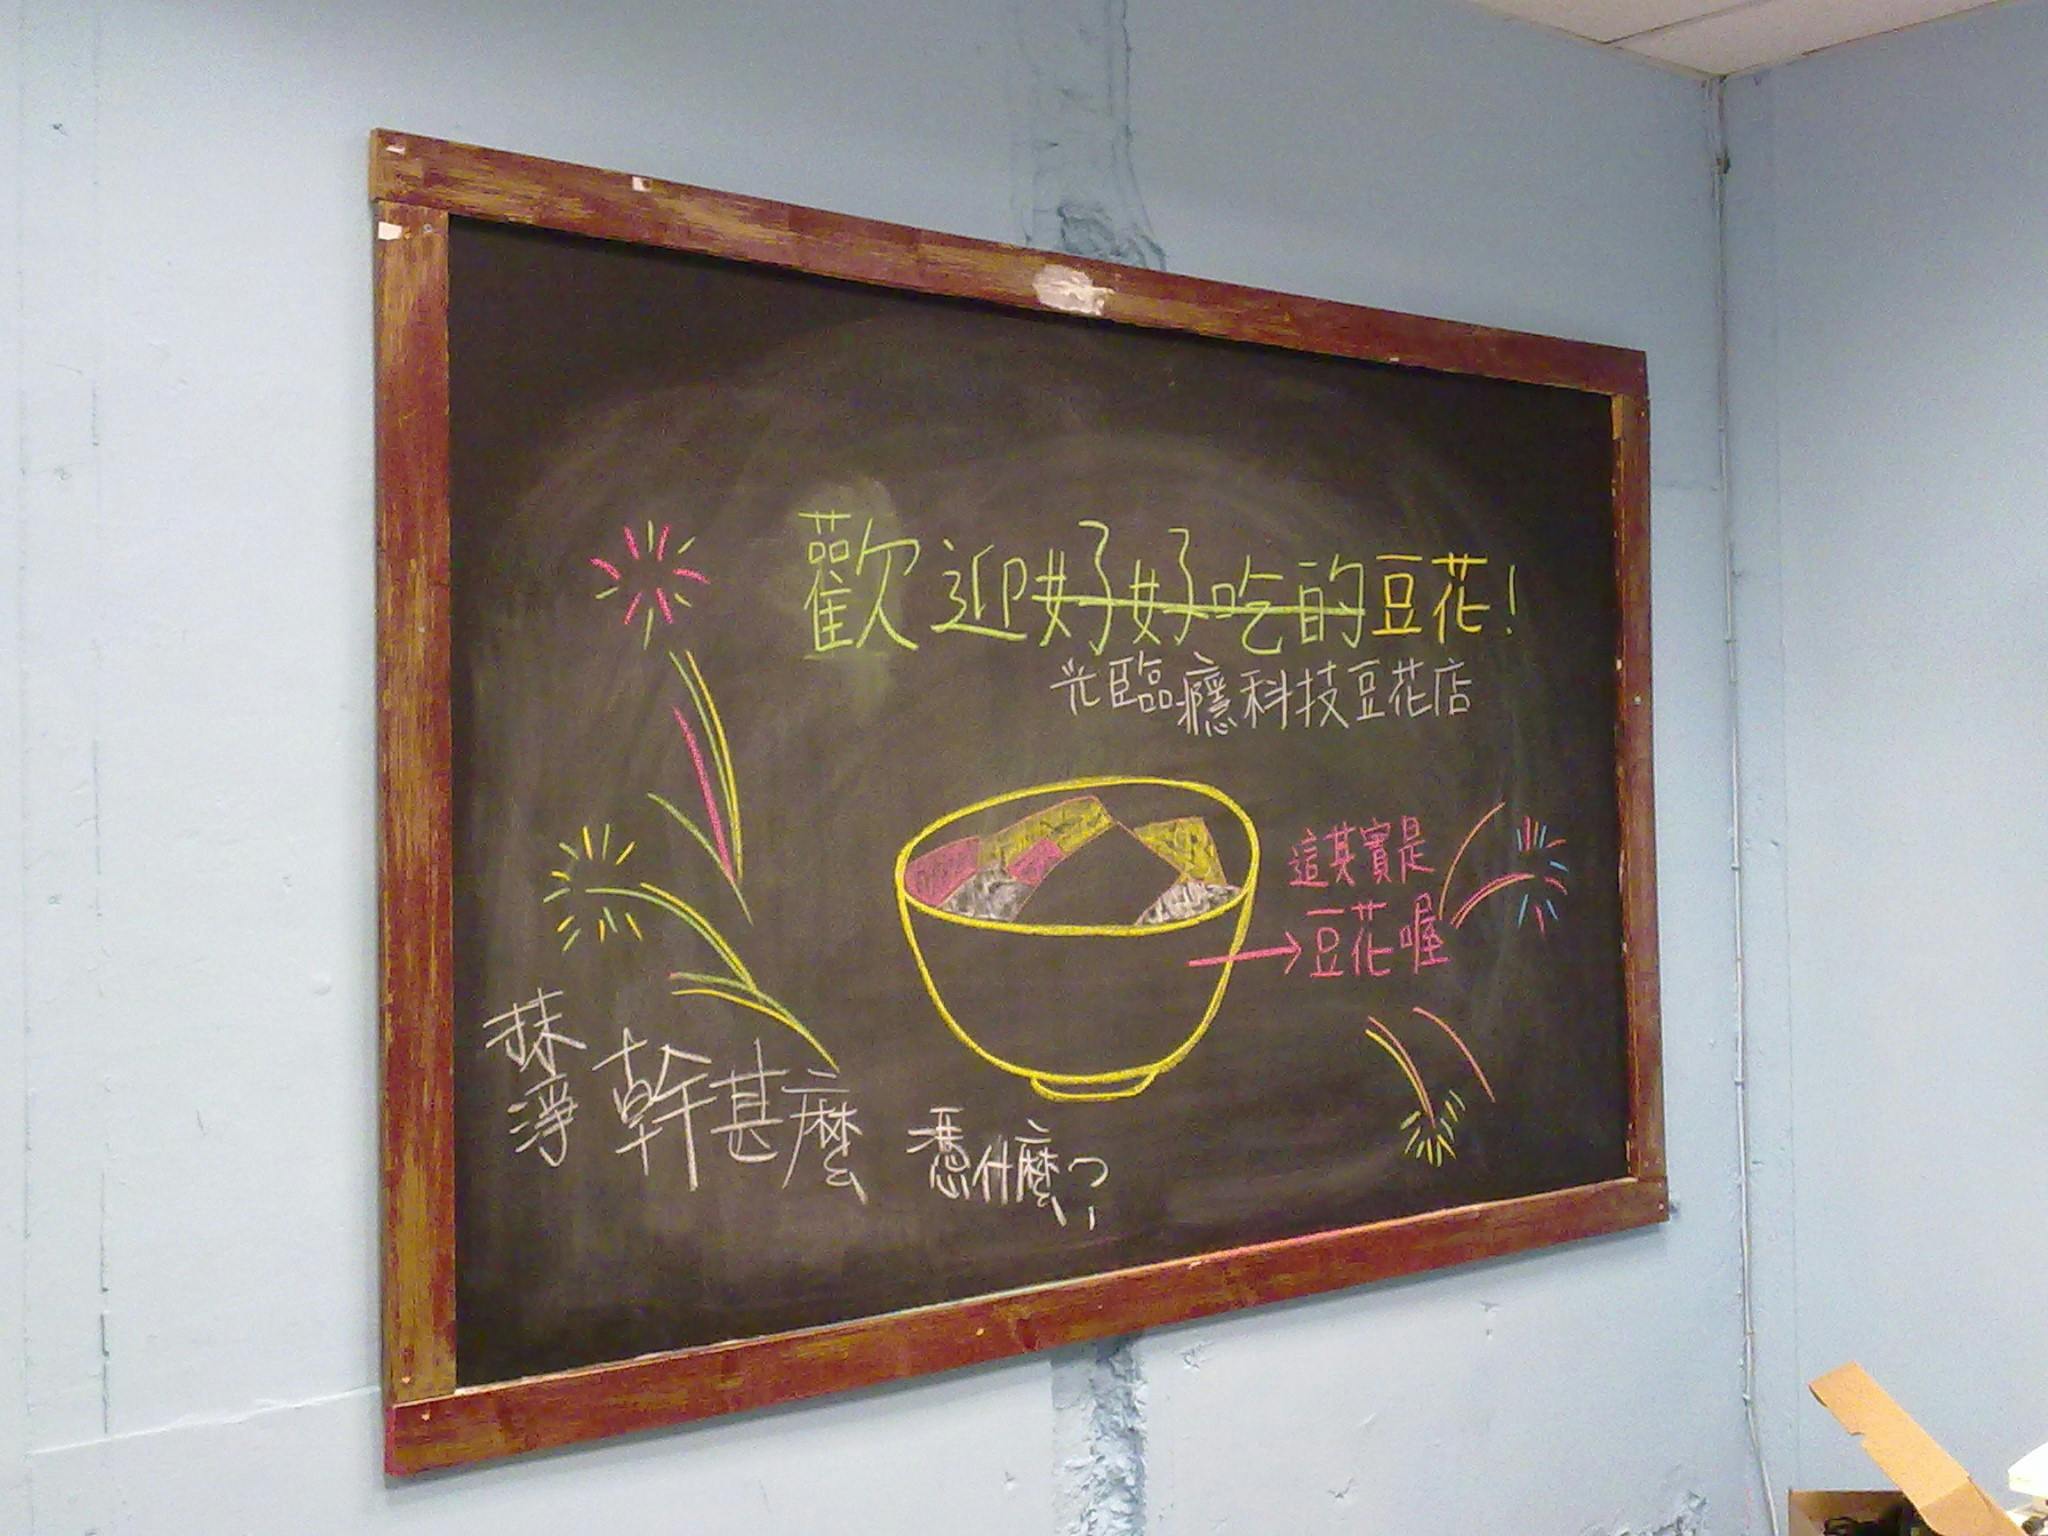 歡迎好好吃的豆花!
光臨癮科技豆花店
這其實是
豆花喔
抹
淨
幹甚麼
憑什麼?